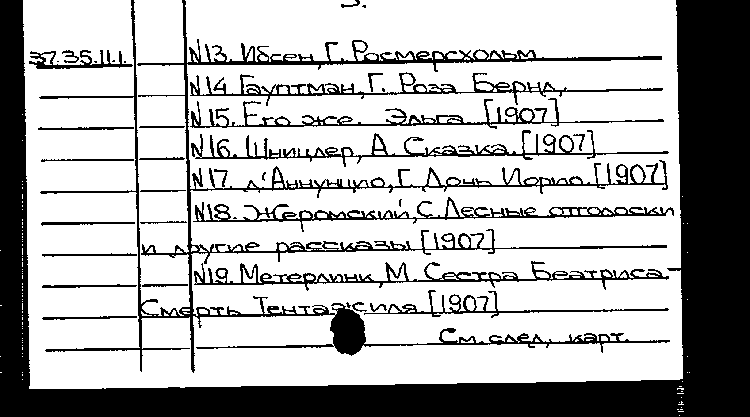 3.
37.35.11.1. N13. Ибсен, Г. Росмерсхольм.
N14 Гауптман, Г. Роза Бернд,
N15. Его же. Эльга. [1907]
N16. Шницлер, А. Сказка. [1907]
N17. д'Аннунцио, Г. Дочь Иорио. [1907]
N18. Жеромский, С. Лесные отголоски
и другие рассказы [1907]
N19. Метерлинк, М. Сестра Беатриса.-
Смерть Тентажиля [1907]
См. след. карт.